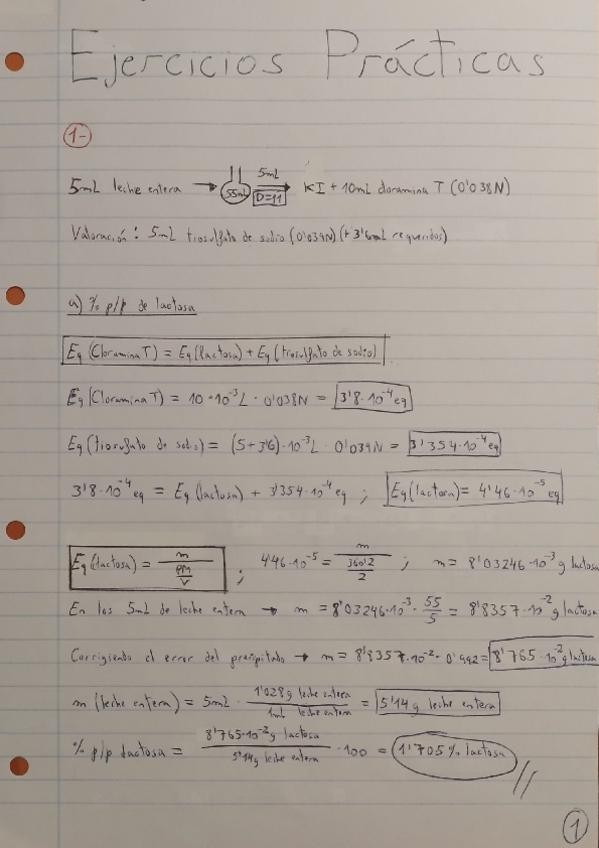 Ejercicios Prácticas
1-
5mL leche entera → 55mL 5mL D=11 → KI + 10mL cloramina T (0'038N)
Valoración: 5mL tiosulfato de sodio (0'039N) (+ 3'6mL requeridos)
a) % p/p de lactosa
Eq (Cloramina T) = Eq (lactosa) + Eq (tiosulfato de sodio)
Eq (Cloramina T) = 10·10⁻³L · 0'038N = 3'8·10⁻⁴ eq
Eq (tiosulfato de sodio) = (5+3'6)·10⁻³L · 0'039N = 3'354·10⁻⁴ eq
3'8·10⁻⁴ eq = Eq (lactosa) + 3'354·10⁻⁴ eq ; Eq (lactosa) = 4'46·10⁻⁵ eq
Eq (lactosa) = m / (PM / V) ; 4'46·10⁻⁵ = m / (360'2 / 2) ; m = 8'03246·10⁻³ g lactosa
En los 5mL de leche entera → m = 8'03246·10⁻³ · 55/5 = 8'8357·10⁻² g lactosa
Corrigiendo el error del precipitado → m = 8'8357·10⁻² · 0'992 = 8'765·10⁻² g lactosa
m (leche entera) = 5mL · 1'028g leche entera / 1mL leche entera = 5'14g leche entera
% p/p Lactosa = 8'765·10⁻² g lactosa / 5'14g leche entera · 100 = 1'705% lactosa
1